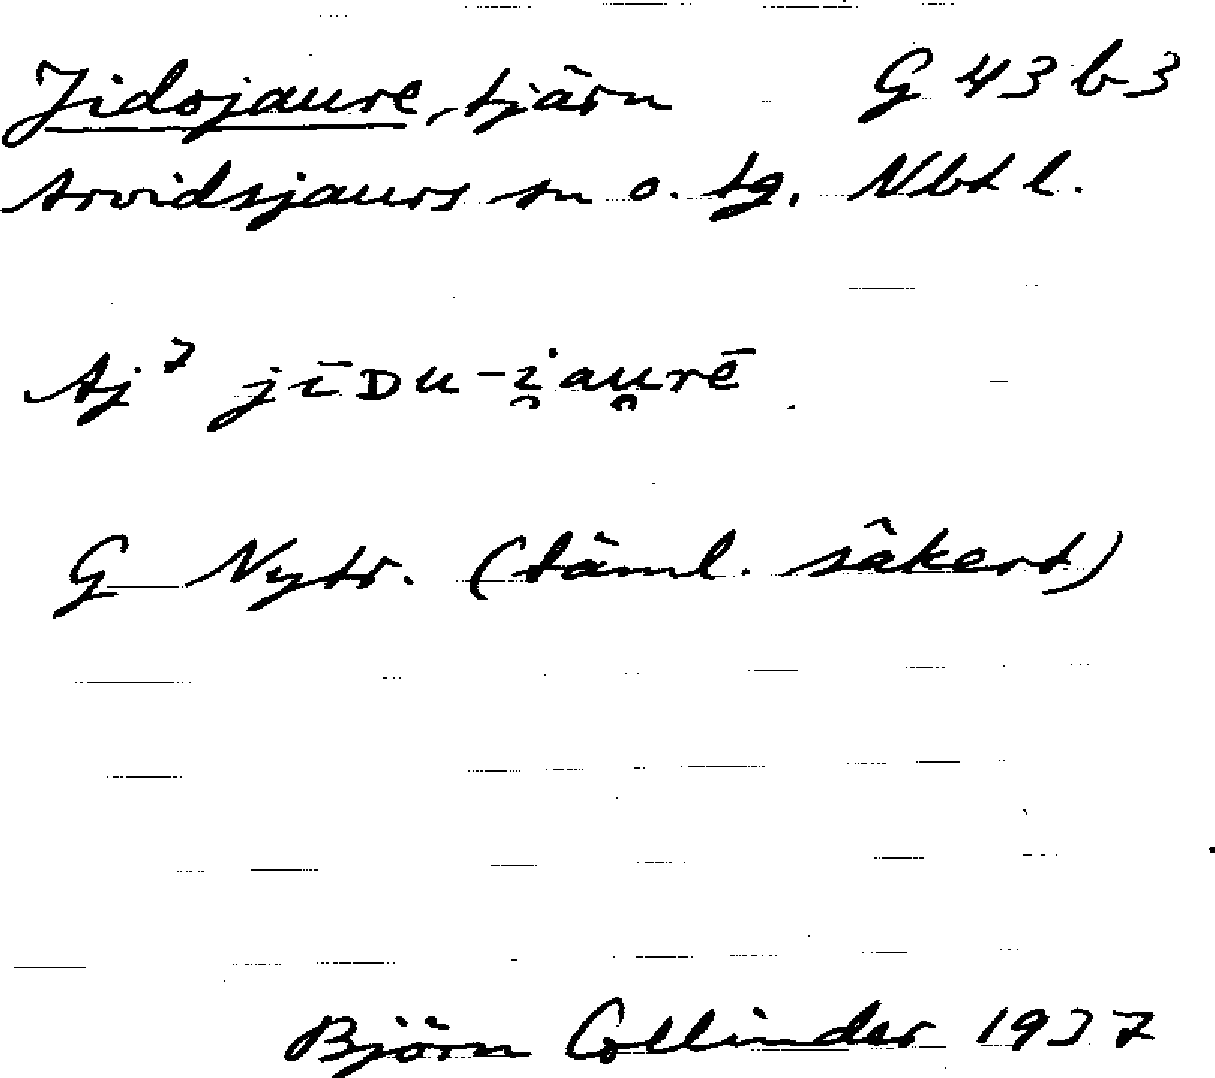 Jidojaure, tjärn G 43 b 3
Arvidsjaurs sn o. tg. Nbtl.
Aj 7 jīDu-i̯au̯rē
G Nytr. (täml. säkert)
Björn Collinder 1937